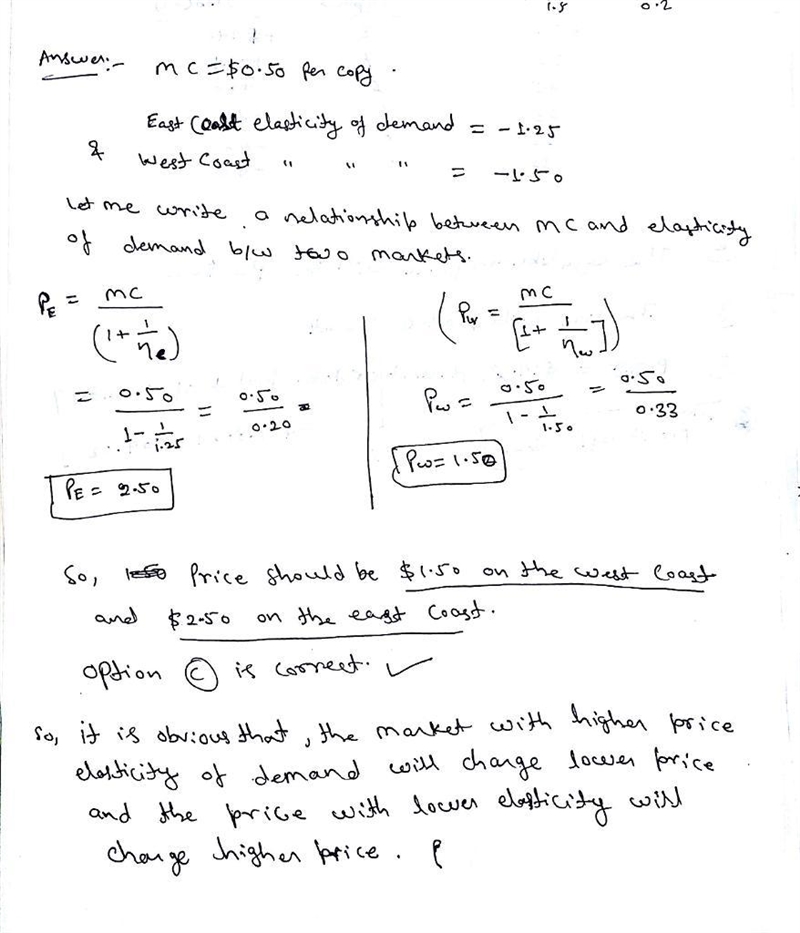 1.5 0.2
Answer:- MC = $0.50 per copy.
East Coast elasticity of demand = -1.25
& West Coast " " " = -1.50
Let me write a relationship between MC and elasticity
of demand b/w two markets.
P_E = MC / (1 + 1/η_e)
= 0.50 / (1 - 1/1.25) = 0.50 / 0.20 =
P_E = 2.50
(P_w = MC / [1 + 1/η_w])
P_w = 0.50 / (1 - 1/1.50) = 0.50 / 0.33
P_w = 1.50
So, Price should be $1.50 on the west Coast
and $2.50 on the east Coast.
option (C) is correct. ✓
So, it is obvious that, the market with higher price
elasticity of demand will charge lower price
and the price with lower elasticity will
charge higher price.